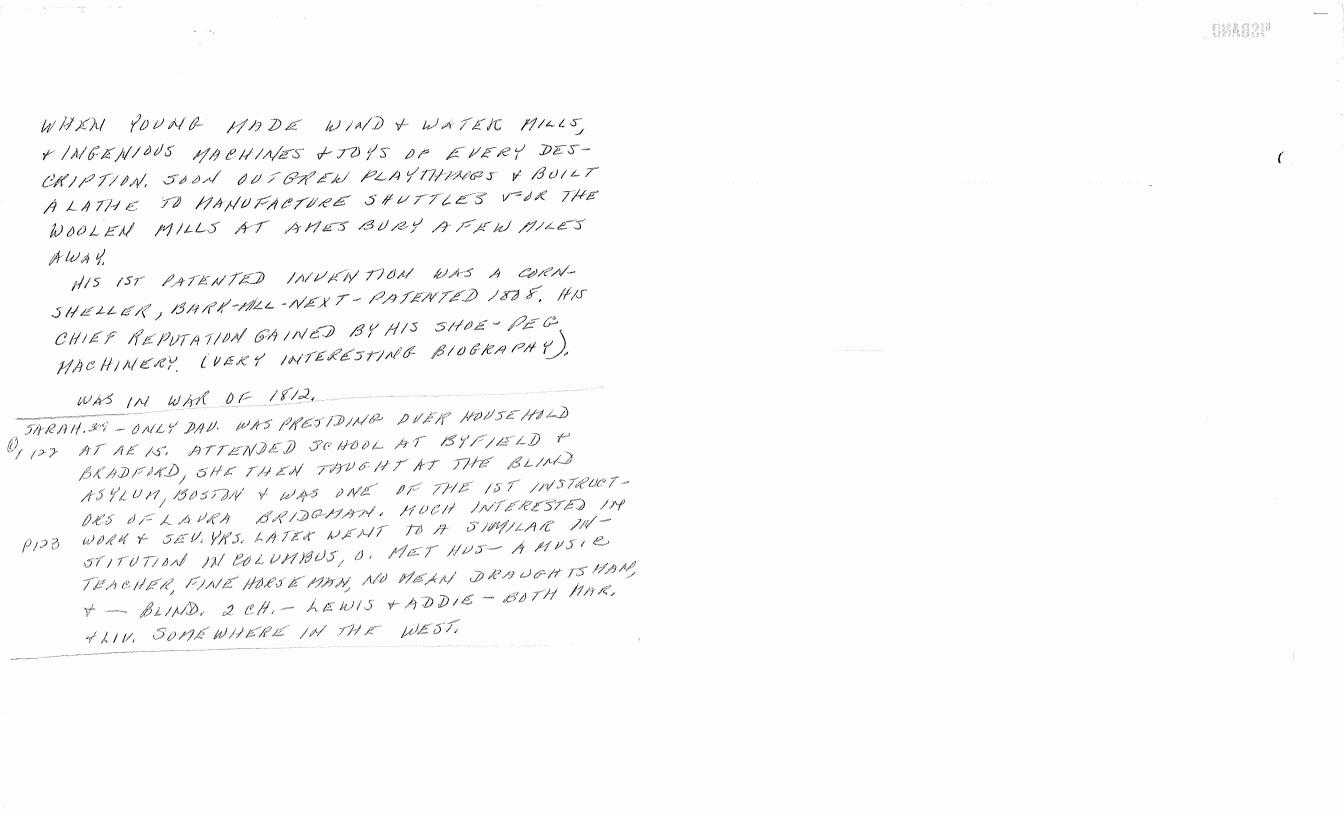 WHEN YOUNG MADE WIND & WATER MILLS,
& INGENIOUS MACHINES & TOYS OF EVERY DES-
CRIPTION. SOON OUTGREW PLAYTHINGS & BUILT
A LATHE TO MANUFACTURE SHUTTLES FOR THE
WOOLEN MILLS AT AMESBURY A FEW MILES
AWAY.
HIS 1ST PATENTED INVENTION WAS A CORN-
SHELLER, BARK-MILL-NEXT-PATENTED 1808. HIS
CHIEF REPUTATION GAINED BY HIS SHOE-PEG
MACHINERY. (VERY INTERESTING BIOGRAPHY).
WAS IN WAR OF 1812.
SARAH. - ONLY DAU. WAS PRESIDING OVER HOUSEHOLD
P, 122 AT AE 15. ATTENDED SCHOOL AT BYFIELD &
BRADFORD, SHE THEN TAUGHT AT THE BLIND
ASYLUM, BOSTON & WAS ONE OF THE 1ST INSTRUCT-
ORS OF LAURA BRIDGMAN. MUCH INTERESTED IN
P123 WORK & SEV. YRS. LATER WENT TO A SIMILAR IN-
STITUTION IN COLUMBUS, O. MET HUS- A MUSIC
TEACHER, FINE HORSEMAN, NO MEAN DRAUGHTSMAN,
& — BLIND. 2 CH. - LEWIS & ADDIE - BOTH MAR.
& LIV. SOMEWHERE IN THE WEST.